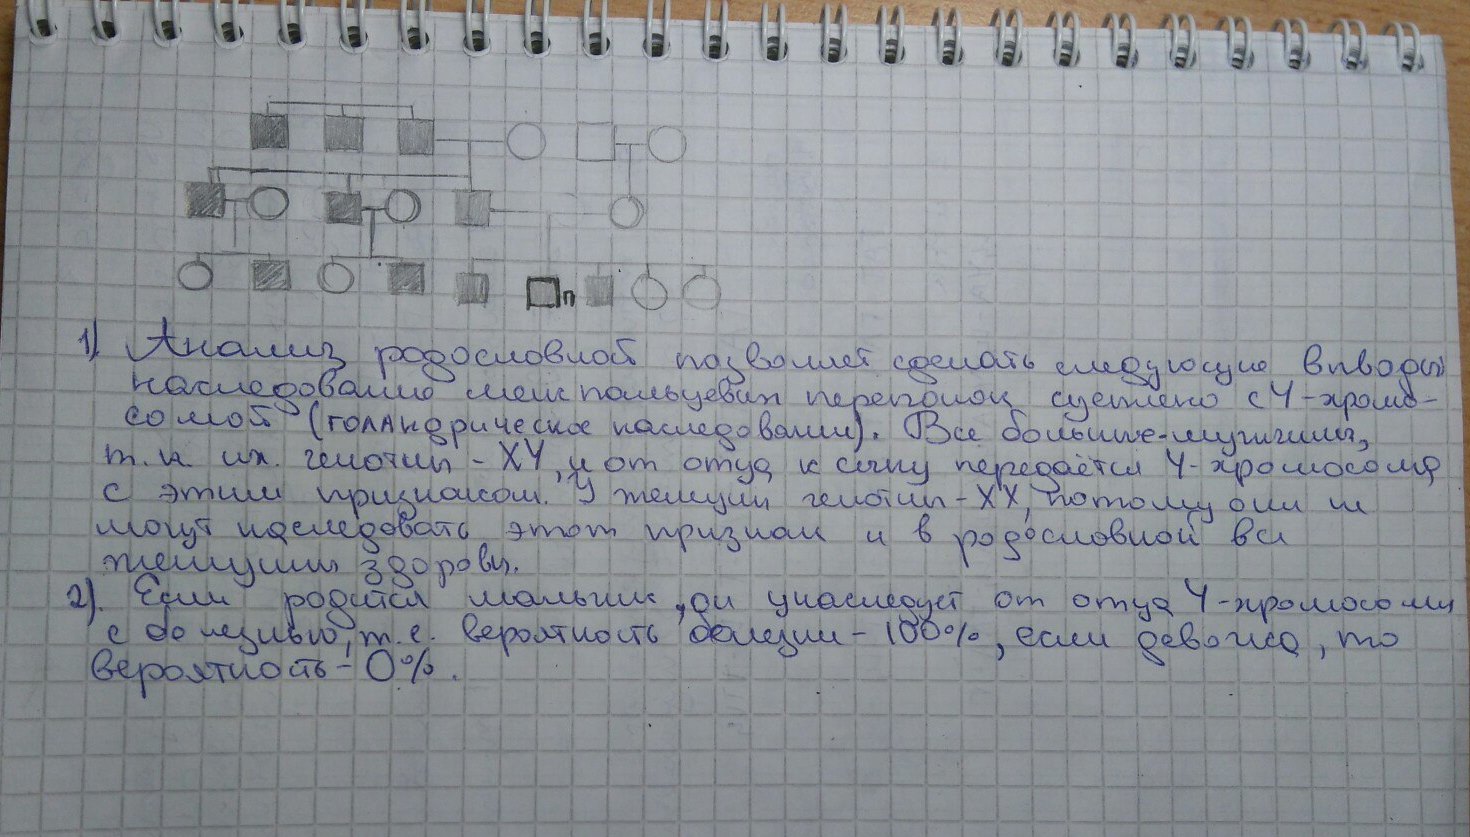 п
1) Анализ родословной позволяет сделать следующие выводы
наследование межпальцевых перепонок сцеплено с Y-хромо-
сомой (голандрическое наследование). Все больные-мужчины,
т.к. их генотип - XY, и от отца к сыну передаётся Y-хромосома
с этим признаком. У женщин генотип - XX, потому они не
могут наследовать этот признак и в родословной все
женщины здоровы.
2). Если родится мальчик, он унаследует от отца Y-хромосому
с болезнью, т.е. вероятность болезни - 100%, если девочка, то
вероятность - 0%.